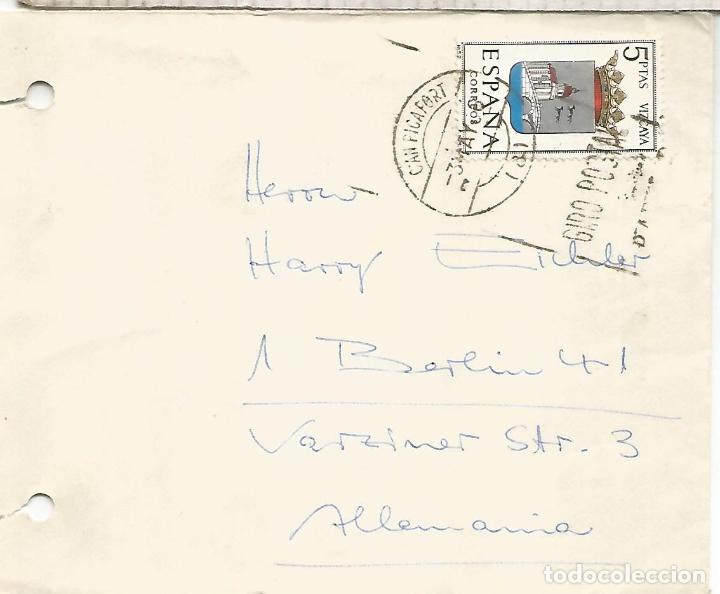 5 PTAS VIZCAYA
ESPAÑA
CORREOS
CAN PICAFORT
GIRO POSTAL
Herrn
Harry Eichler
1 Berlin 41
Varziner Str. 3
Allemania
todocoleccion.net